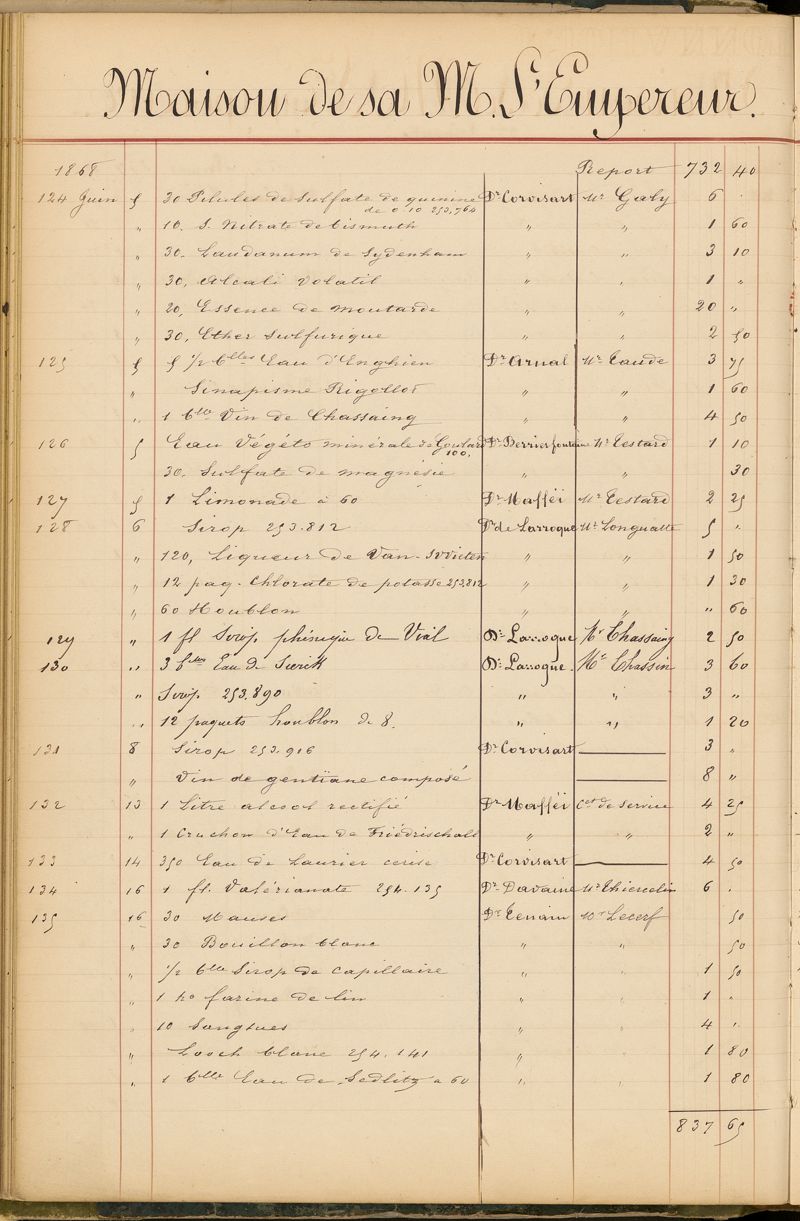 Maison de sa M. L'Empereur.
1868 Report 732 40
124 Juin 5 30 Pilules de Sulfate de quinine Dr Corvisart Mr Galy 6
de 0 10 253,764
" 10. S. Nitrate de bismuth " " 1 60
" 30. Laudanum de Sydenham " " 3 10
" 30, Alcali Volatil " " 1 "
" 20, Essence de Moutarde " " 20 "
" 30, Ether Sulfurique " " 2 50
125 5 5 1/2 blles Eau d'Enghien Dr Arnal Mr Taude 3 75
" Sinapisme Rigollot " " 1 60
" 1 blle Vin de Chassaing " " 4 50
126 5 Eau Végéto minérale de Goulard Dr Berrier fontaine Mr Testard 1 10
100.
30. Sulfate de magnésie " " 30
127 5 1 Limonade à 60 Dr Mafféï Mr Testard 2 25
128 6 Sirop 253.812 Dr de Larroque Mr Longuatte 5 "
" 120, Liqueur de Van-Swieten " " 1 50
" 12 paq. Chlorate de potasse 253,812 " " 1 30
" 60 Houblon " " " 60
129 " 1 fl Sirop phénique de Vial Dr Larroque Mr Chassaing 2 50
130 " 3 blles Eau de Dr Larroque. Mr Chassin 3 60
" Sirop 253.890 " " 3 "
" 12 paquets houblon de 8. " " 1 20
131 8 Sirop 253.916 Dr Corvisart 3 "
" Vin de gentiane composé 8 "
132 13 1 Litre alcool rectifié Dr Mafféï Cet de Service 4 25
" 1 Cruchon d'Eau de Friédrischall " " 2 "
133 14 350 Eau de Laurier cerise Dr Corvisart 4 50
134 16 1 fl. Valérianate 254.135 Dr Davaine Mr Thiercelin 6 .
135 16 30 Mauves Dr Tenain Mr Lecerf 50
" 30 Bouillon blanc " " 50
" 1/2 blle Sirop de Capillaire " " 1 50
" 1 ho farine de lin " " 1 "
" 10 Sangsues " " 4 "
" Looch blanc 254.141 " 1 80
" 1 blle Eau de Sedlitz à 60 " " 1 80
837 65